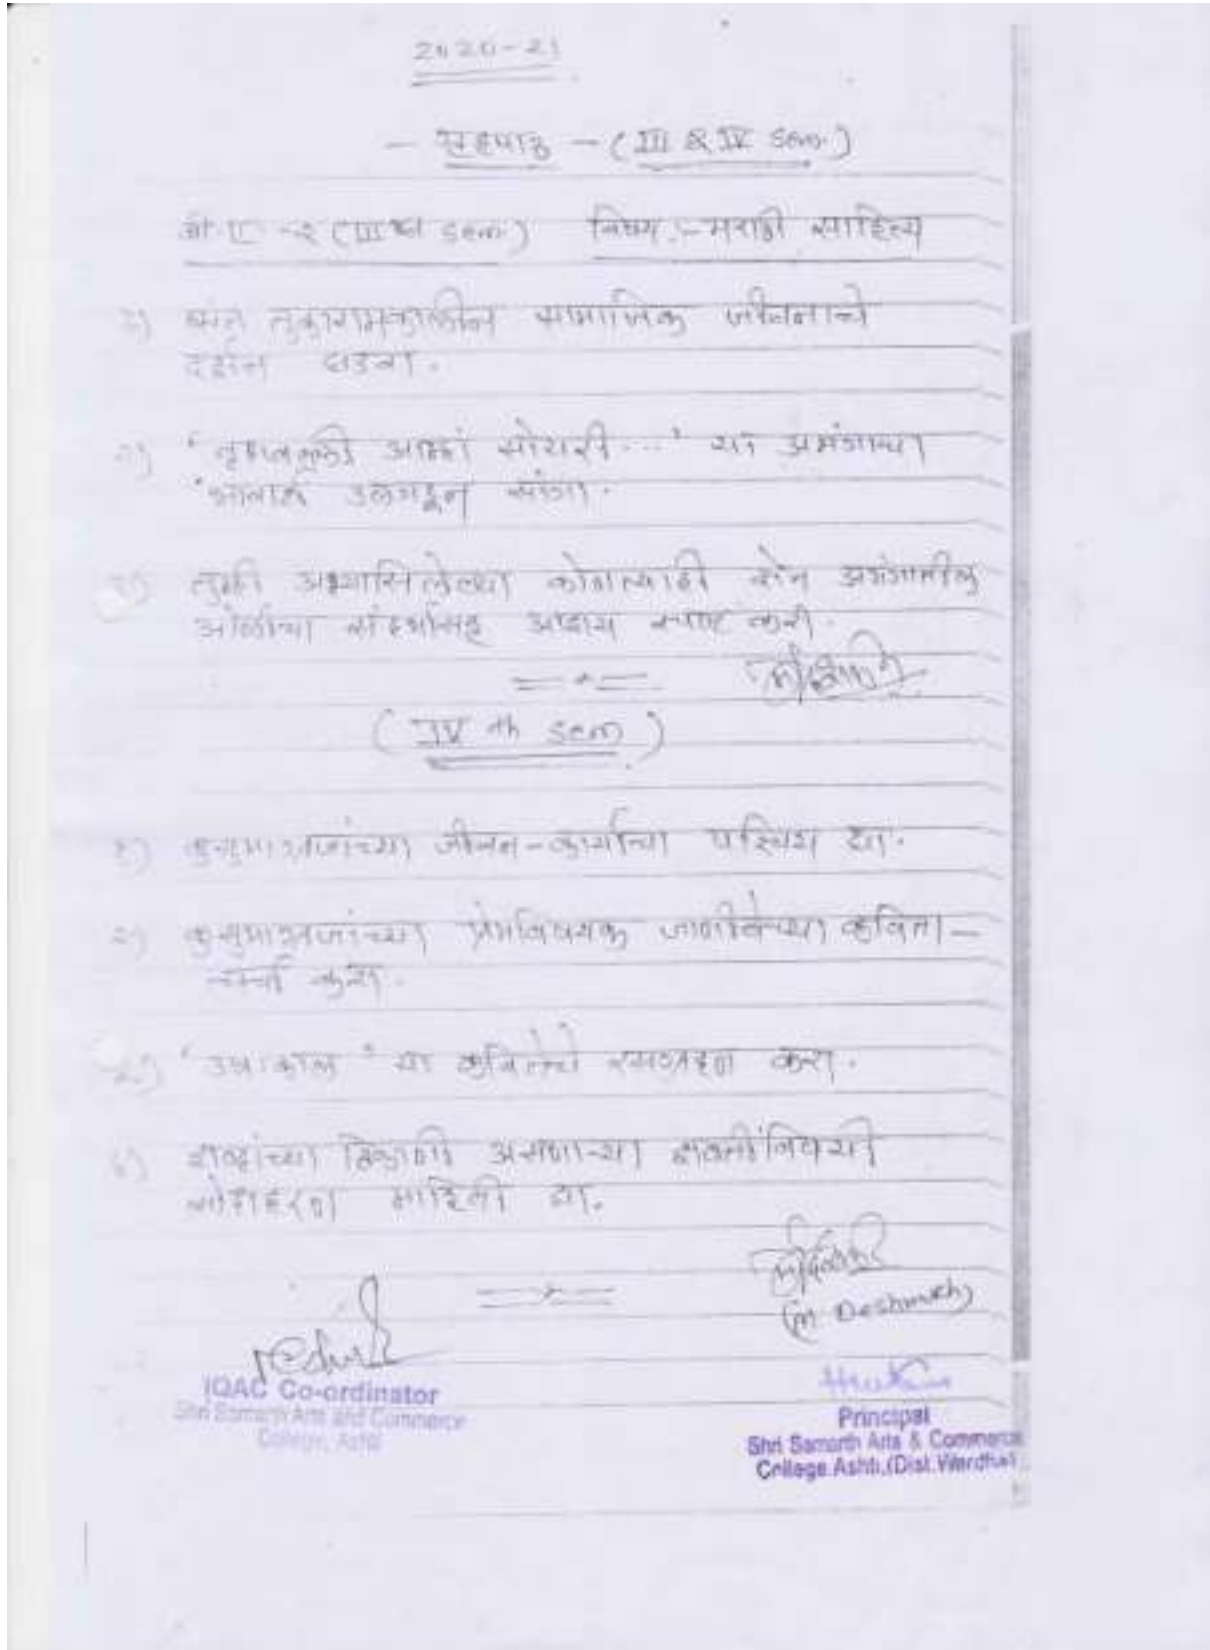 2020-21
- गृहपाठ - (III & IV Sem.)
बी.ए.-२ (III rd Sem.) विषय :- मराठी साहित्य
१) संत तुकारामकालीन सामाजिक जीवनाचे
दर्शन घडवा.
२) 'वृक्षवल्ली आम्हां सोयरी...' या अभंगाचा
भावार्थ उलगडून सांगा.
३) तुम्ही अभ्यासिलेल्या कोणत्याही दोन अभंगातील
ओळींचा संदर्भासह आशय स्पष्ट करा.
(IV th Sem)
१) कुसुमाग्रजांच्या जीवन-कार्याचा परिचय द्या.
२) कुसुमाग्रजांच्या प्रेमविषयक जाणीवेच्या कविता -
चर्चा करा.
३) 'उषःकाल' या कवितेचे रसग्रहण करा.
४) शब्दांच्या ठिकाणी असणाऱ्या शक्तींविषयी
सोदाहरण माहिती द्या.
(M. Deshmukh)
IQAC Co-ordinator
Shri Samarth Arts and Commerce
College, Ashti
Principal
Shri Samarth Arts & Commerce
College Ashti,(Dist.Wardha)